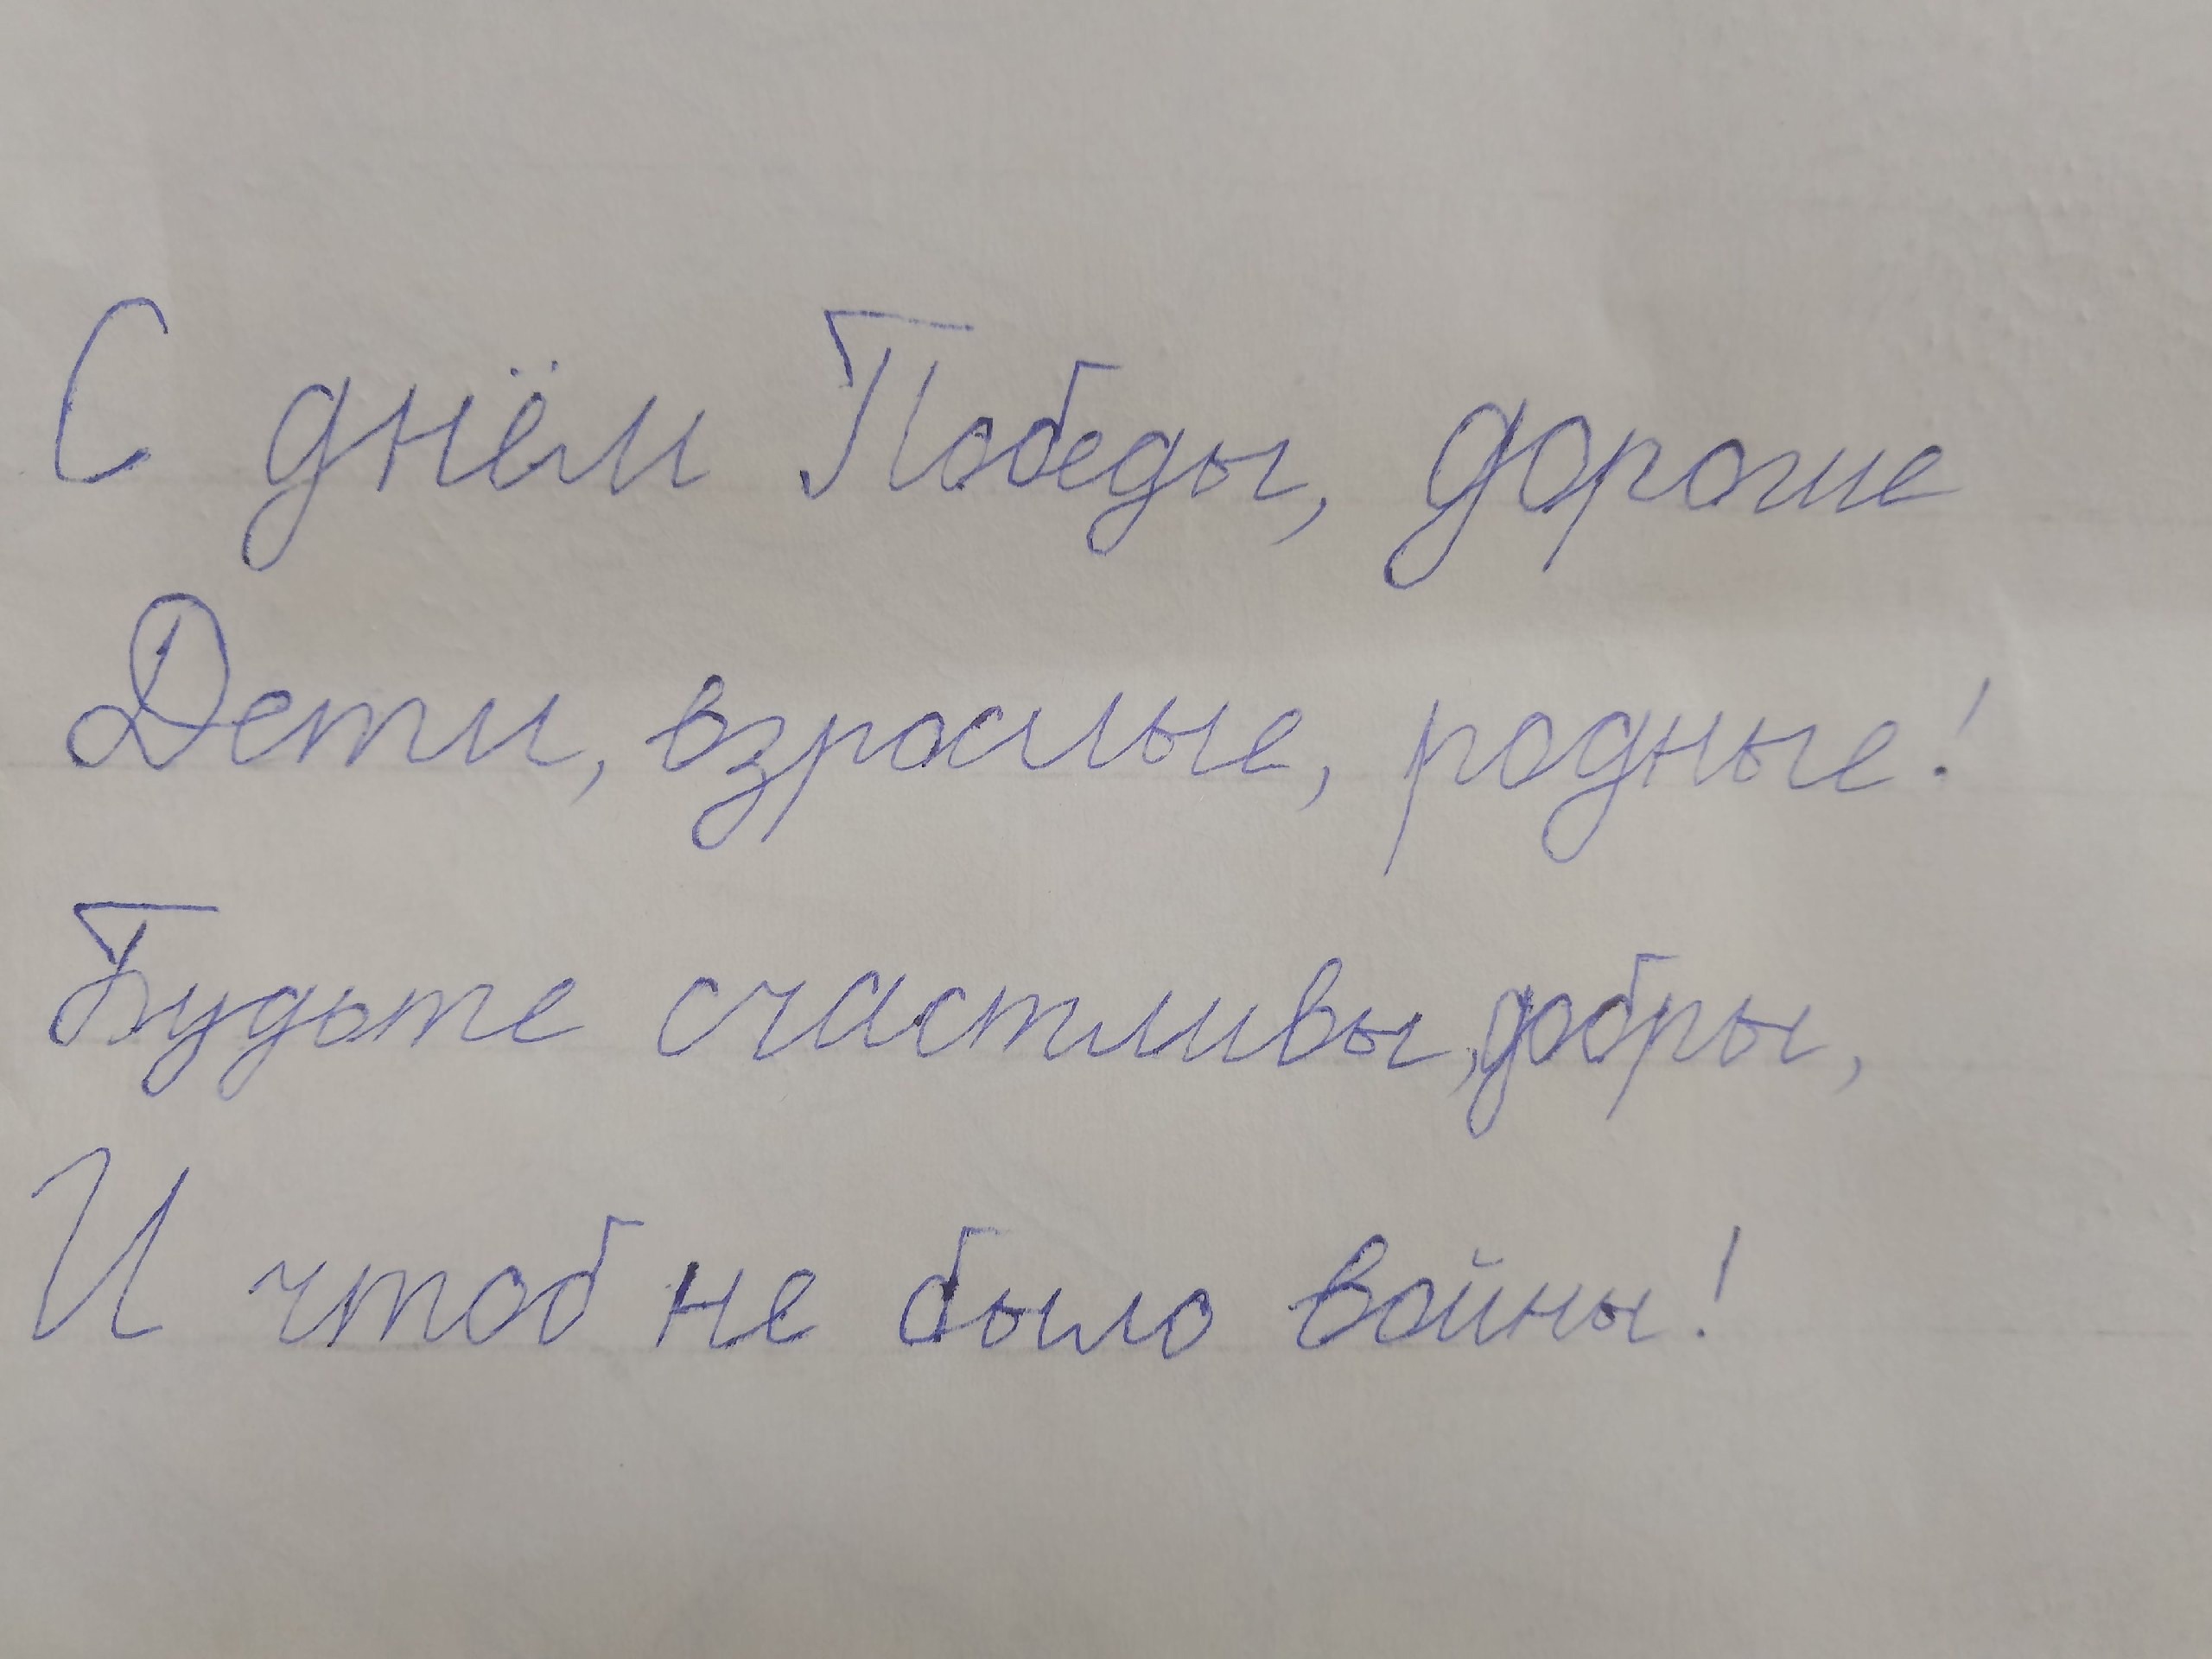 С днём Победы, дорогие
Дети, взрослые, родные!
Будьте счастливы, добры,
И чтоб не было войны!